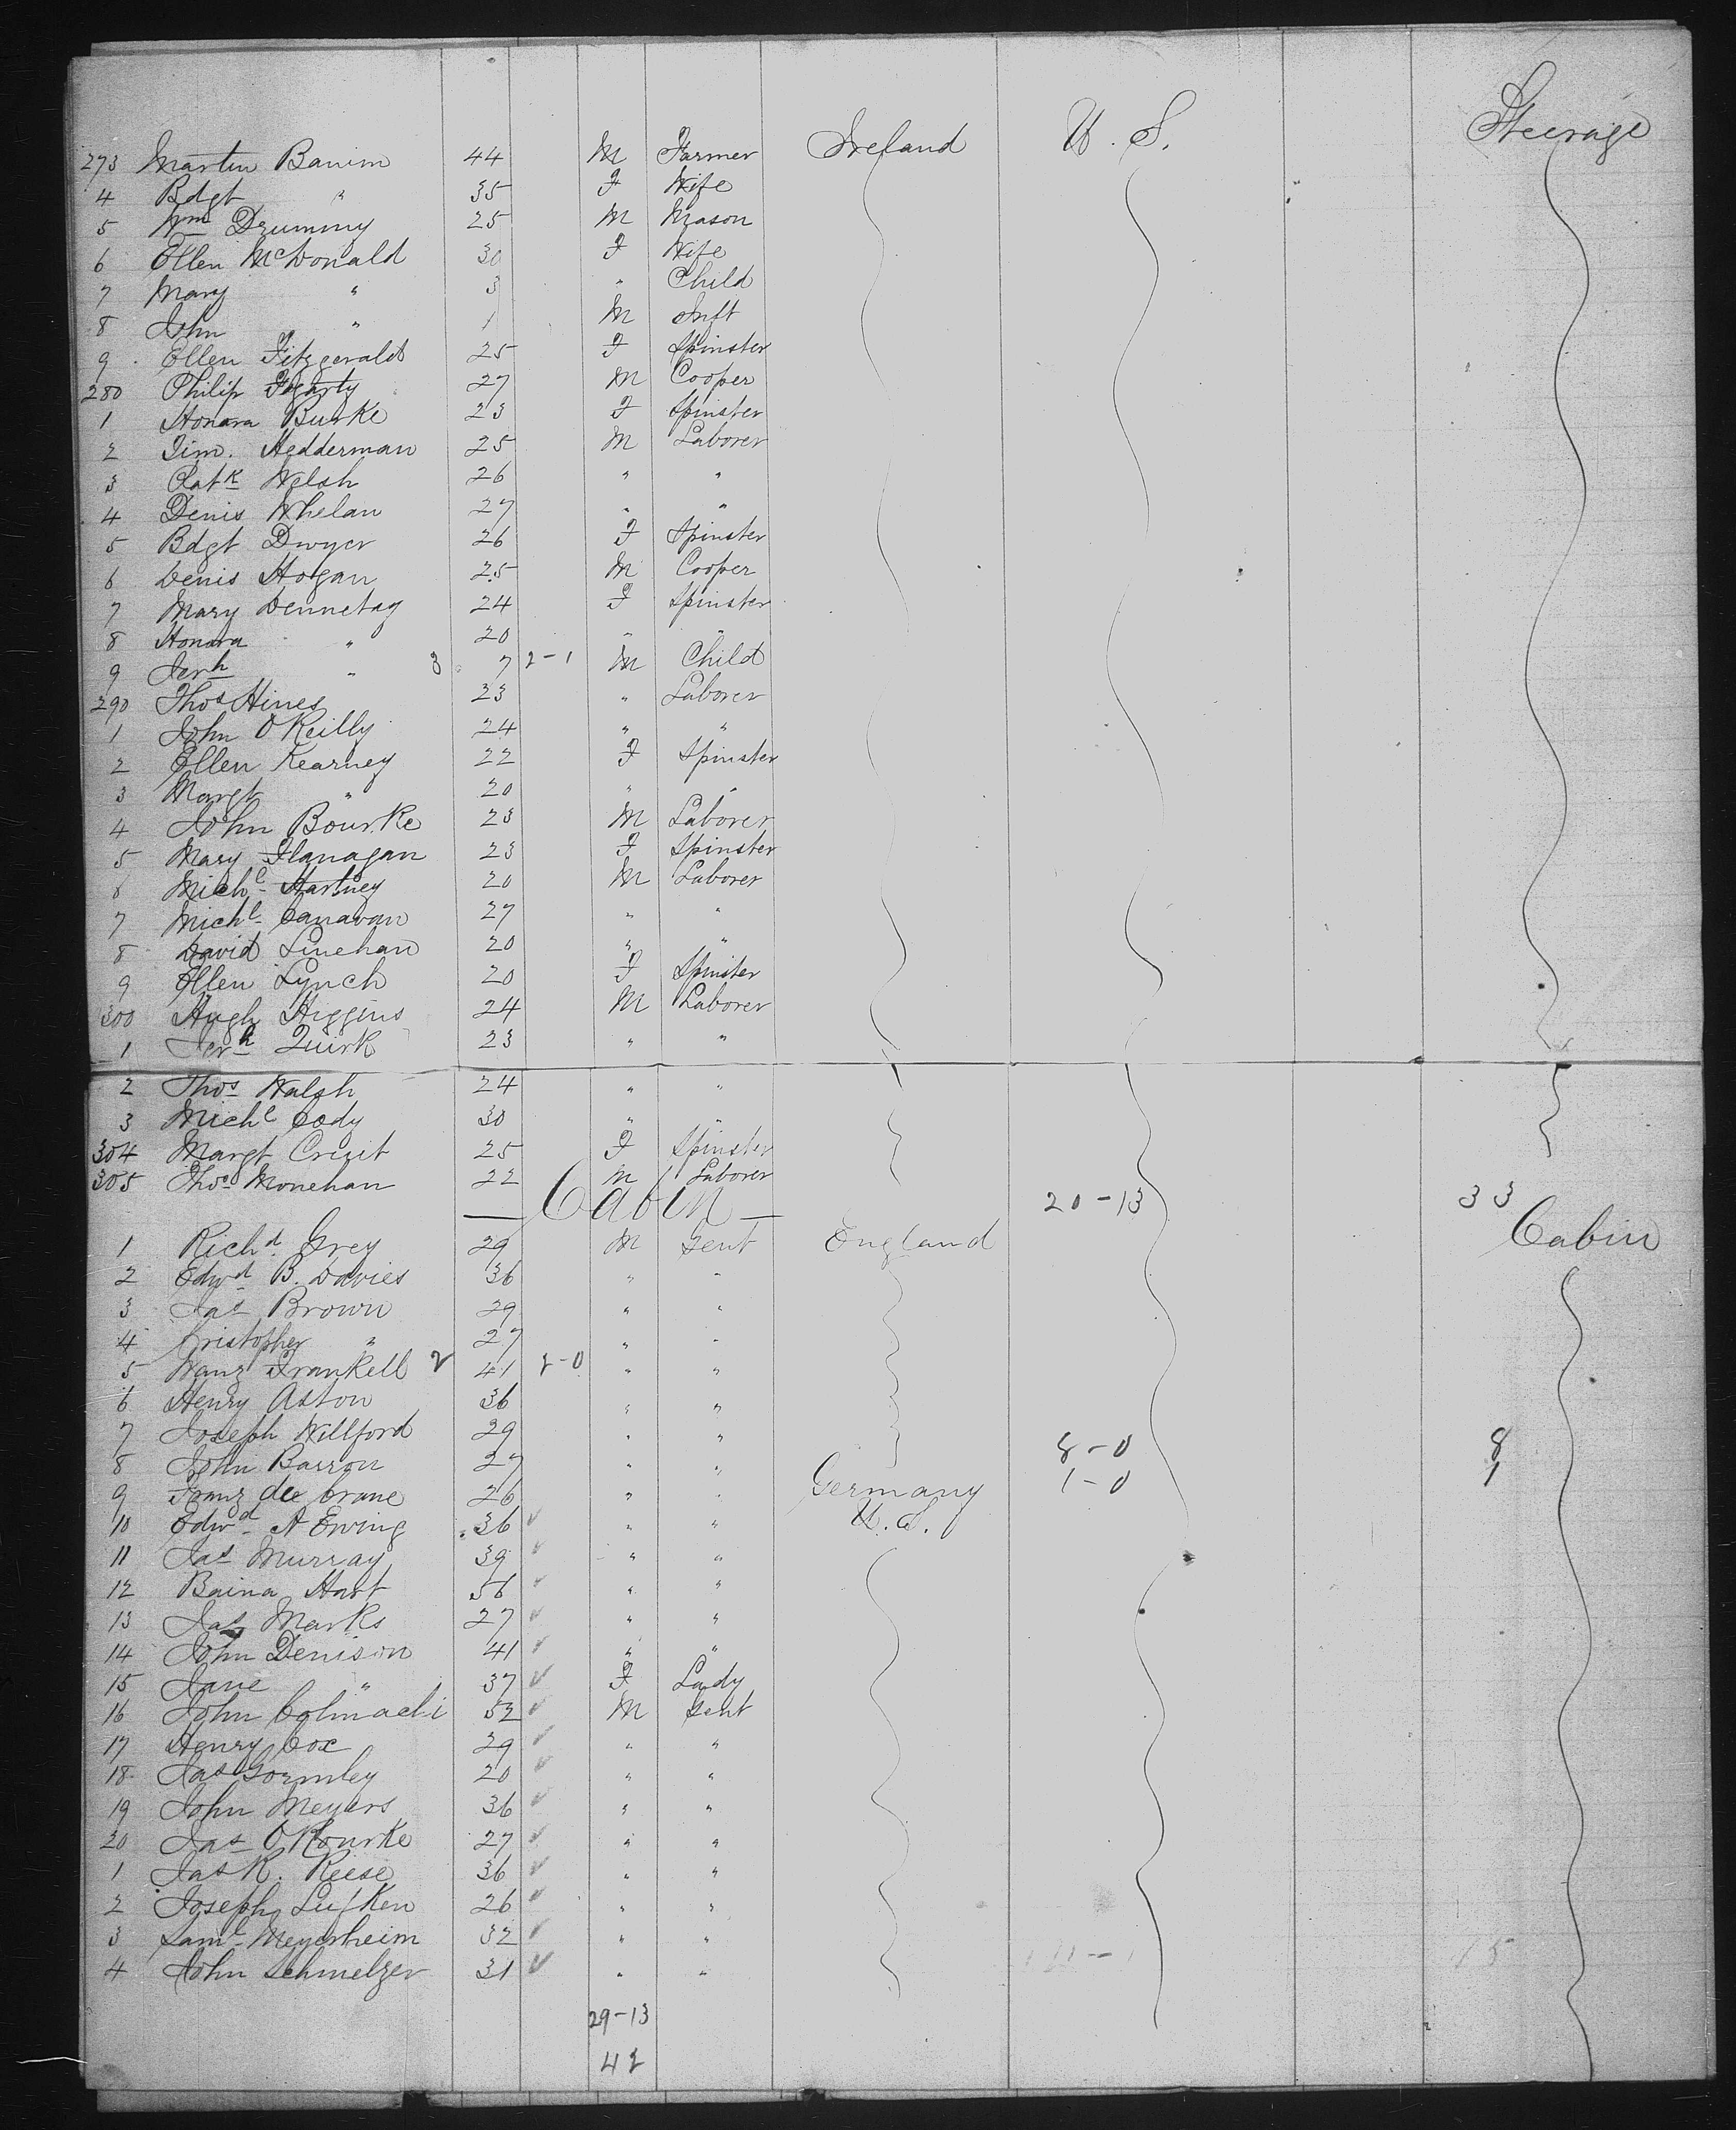 273 Martin Banim 44 M Farmer Ireland U. S. Steerage
4 Bdgt " 35 F Wife
5 Wm Drummy 25 M Mason
6 Ellen McDonald 30 F Wife
7 Mary " 3 " Child
8 John " 1 M Inft
9 Ellen Fitzgerald 25 F Spinster
280 Philip Fogarty 27 M Cooper
1 Honora Burke 23 F Spinster
2 Tim. Hedderman 25 M Laborer
3 Patk Welsh 26 " "
4 Denis Whelan 27 " "
5 Bdgt Dwyer 26 F Spinster
6 Denis Hogan 25 M Cooper
7 Mary Dennehay 24 F Spinster
8 Honora " 20 " "
9 Jerh " 3 7 2-1 M Child
290 Thos Hines 23 " Laborer
1 John O'Reilly 24 " "
2 Ellen Kearney 22 F Spinster
3 Margt " 20 " "
4 John Bourke 23 M Laborer
5 Mary Flanagan 23 F Spinster
6 Michl Hartney 20 M Laborer
7 Michl Canavan 27 " "
8 David Linehan 20 " "
9 Ellen Lynch 20 F Spinster
300 Hugh Higgins 24 M Laborer
1 Jerh Quirk 23 " "
2 Thos Walsh 24 " "
3 Michl Cody 30 " "
304 Margt 25 F Spinster
305 Thos Monehan 22 M Laborer
Cabin 20-13 33 Cabin
1 Richd Grey 29 M Gent England
2 Edwd B. Davies 36 " "
3 Jas Brown 29 " "
4 Cristopher " 27 " "
5 Frankell 2 41 2-0 " "
6 Henry Aston 36 " "
7 Joseph Willford 29 " "
8 John Barron 27 " " 8-0 8
9 Franz de Crane 26 " " Germany 1-0 1
10 Edwd A Ewing 36 " " U. S.
11 Jas Murray 39 " "
12 Baina Hart 56 " "
13 Jas Marks 27 " "
14 John Denison 41 " "
15 Jane " 37 F Lady
16 John Colmachi 52 M Gent
17 Henry Cox 29 " "
18 Jas Gormley 20 " "
19 John Meyers 36 " "
20 Jas O'Rourke 27 " "
1 Jas R. Reese 36 " "
2 Joseph Lufken 26 " "
3 Saml Meyerheim 32 " "
4 John Schmelzer 31 " " 15
29-13
42